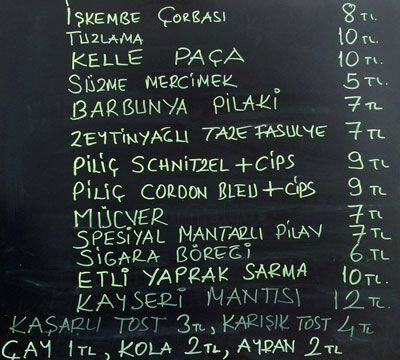 İŞKEMBE ÇORBASI 8 TL
TUZLAMA 10 TL
KELLE PAÇA 10 TL.
SÜZME MERCİMEK 5 TL
BARBUNYA PİLAKİ 7 TL
ZEYTİNYAĞLI TAZE FASULYE 7 TL
PİLİÇ SCHNITZEL + CİPS 9 TL
PİLİÇ CORDON BLEU + CİPS 9 TL
MÜCVER 7 TL
SPESİYAL MANTARLI PİLAV 7 TL
SİGARA BÖREĞİ 6 TL
ETLİ YAPRAK SARMA 10 TL.
KAYSERİ MANTISI 12 TL.
KAŞARLI TOST 3 TL, KARIŞIK TOST 4 TL
ÇAY 1 TL, KOLA 2 TL, AYRAN 2 TL